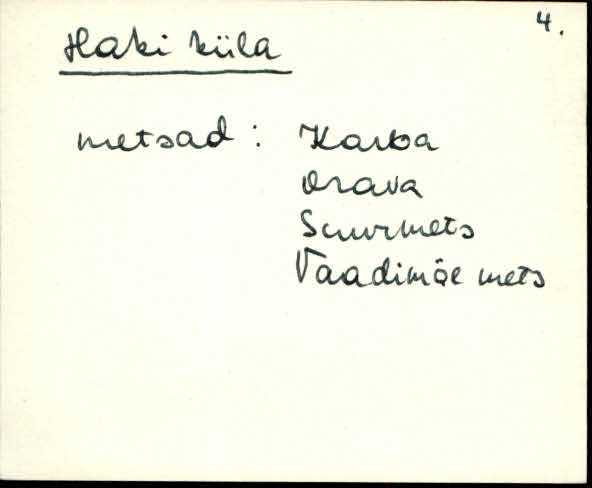 4.
Haki küla
metsad: Karba
Orava
Suurmets
Vaadimäe mets